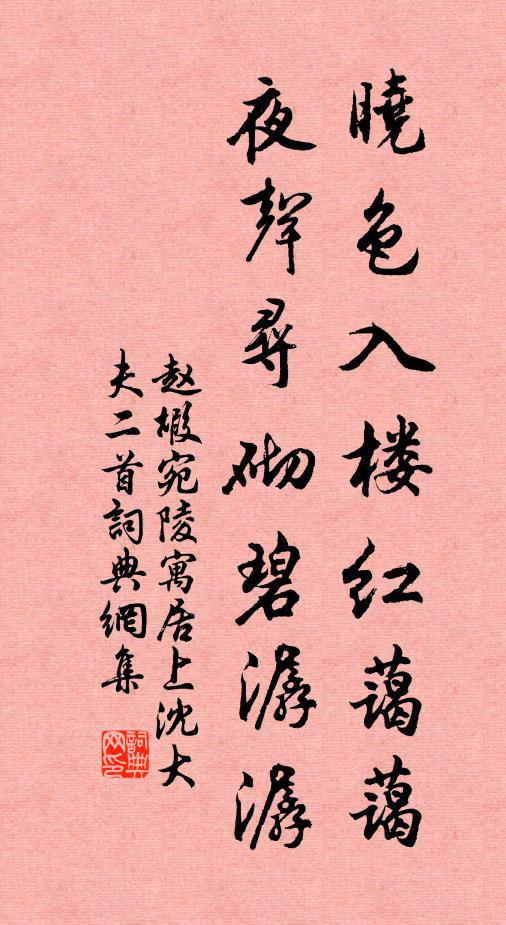 曉色入楼红藹藹
夜聲尋砌碧潺潺
赵嘏宛陵寓居上沈大
夫二首詞典網集
詞典网印